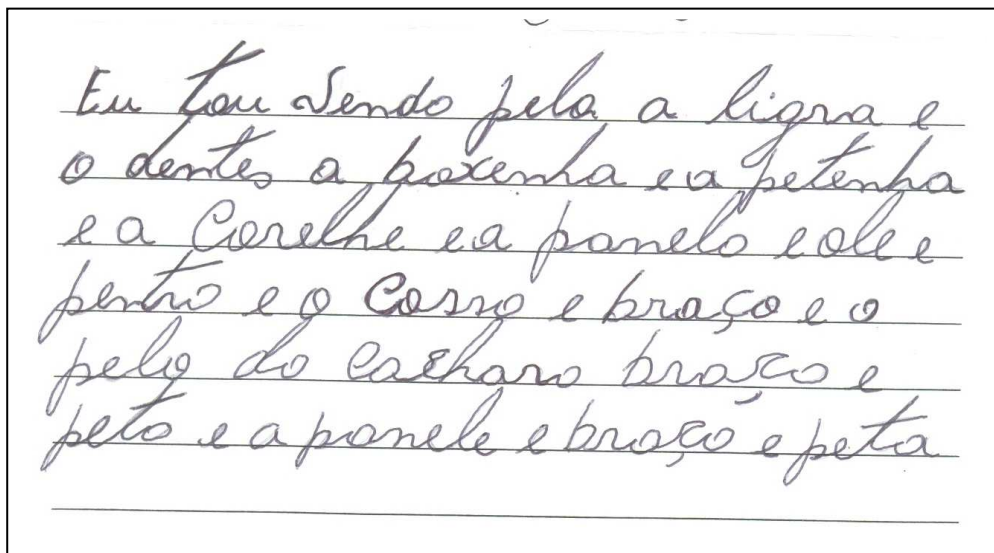 Eu tou Sendo pela a ligra e
o dentes a boxenha e a petenha
e a Corelhe e a panelo e ole e
pentro e o Corro e braço e o
pelo do Cacharo braço e
peto e a panele e braço e peta